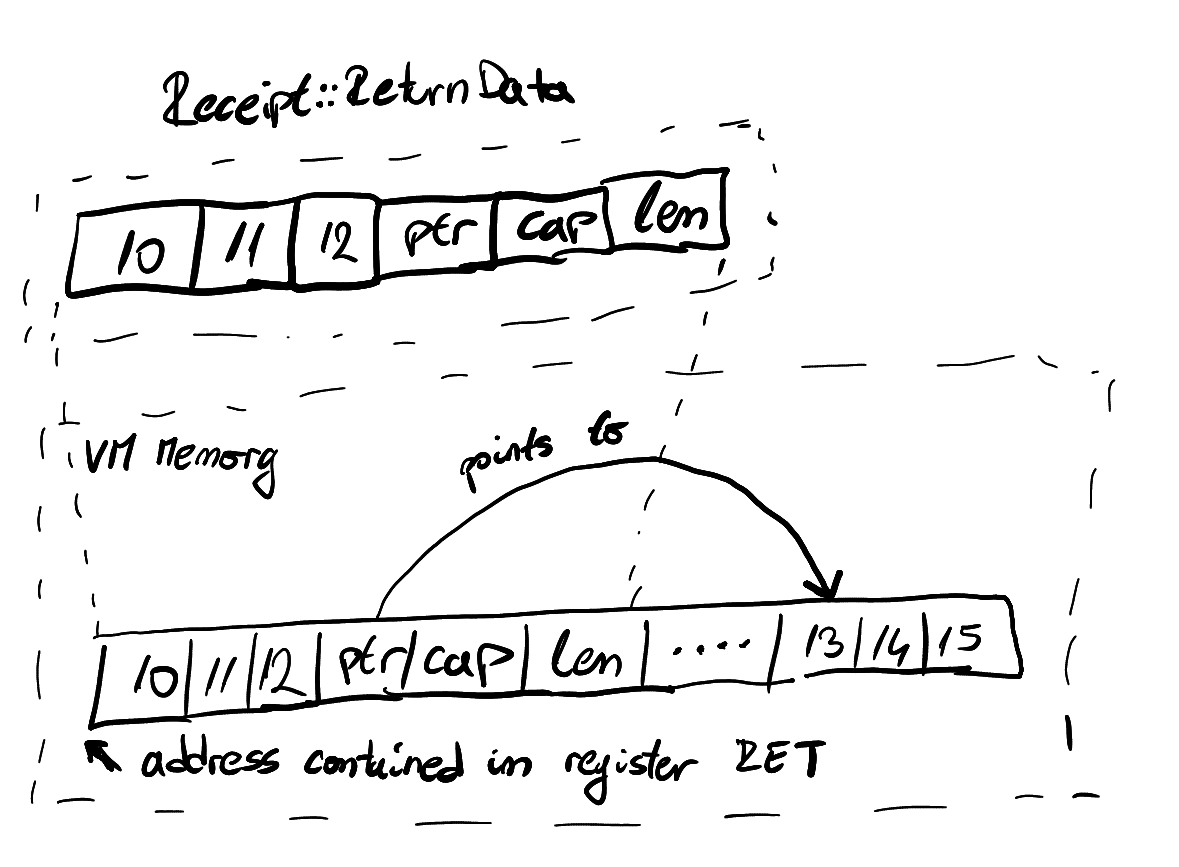 Receipt::ReturnData
10 11 12 ptr cap len
VM Memory
points to
10 11 12 ptr cap len .... 13 14 15
address contained in register RET